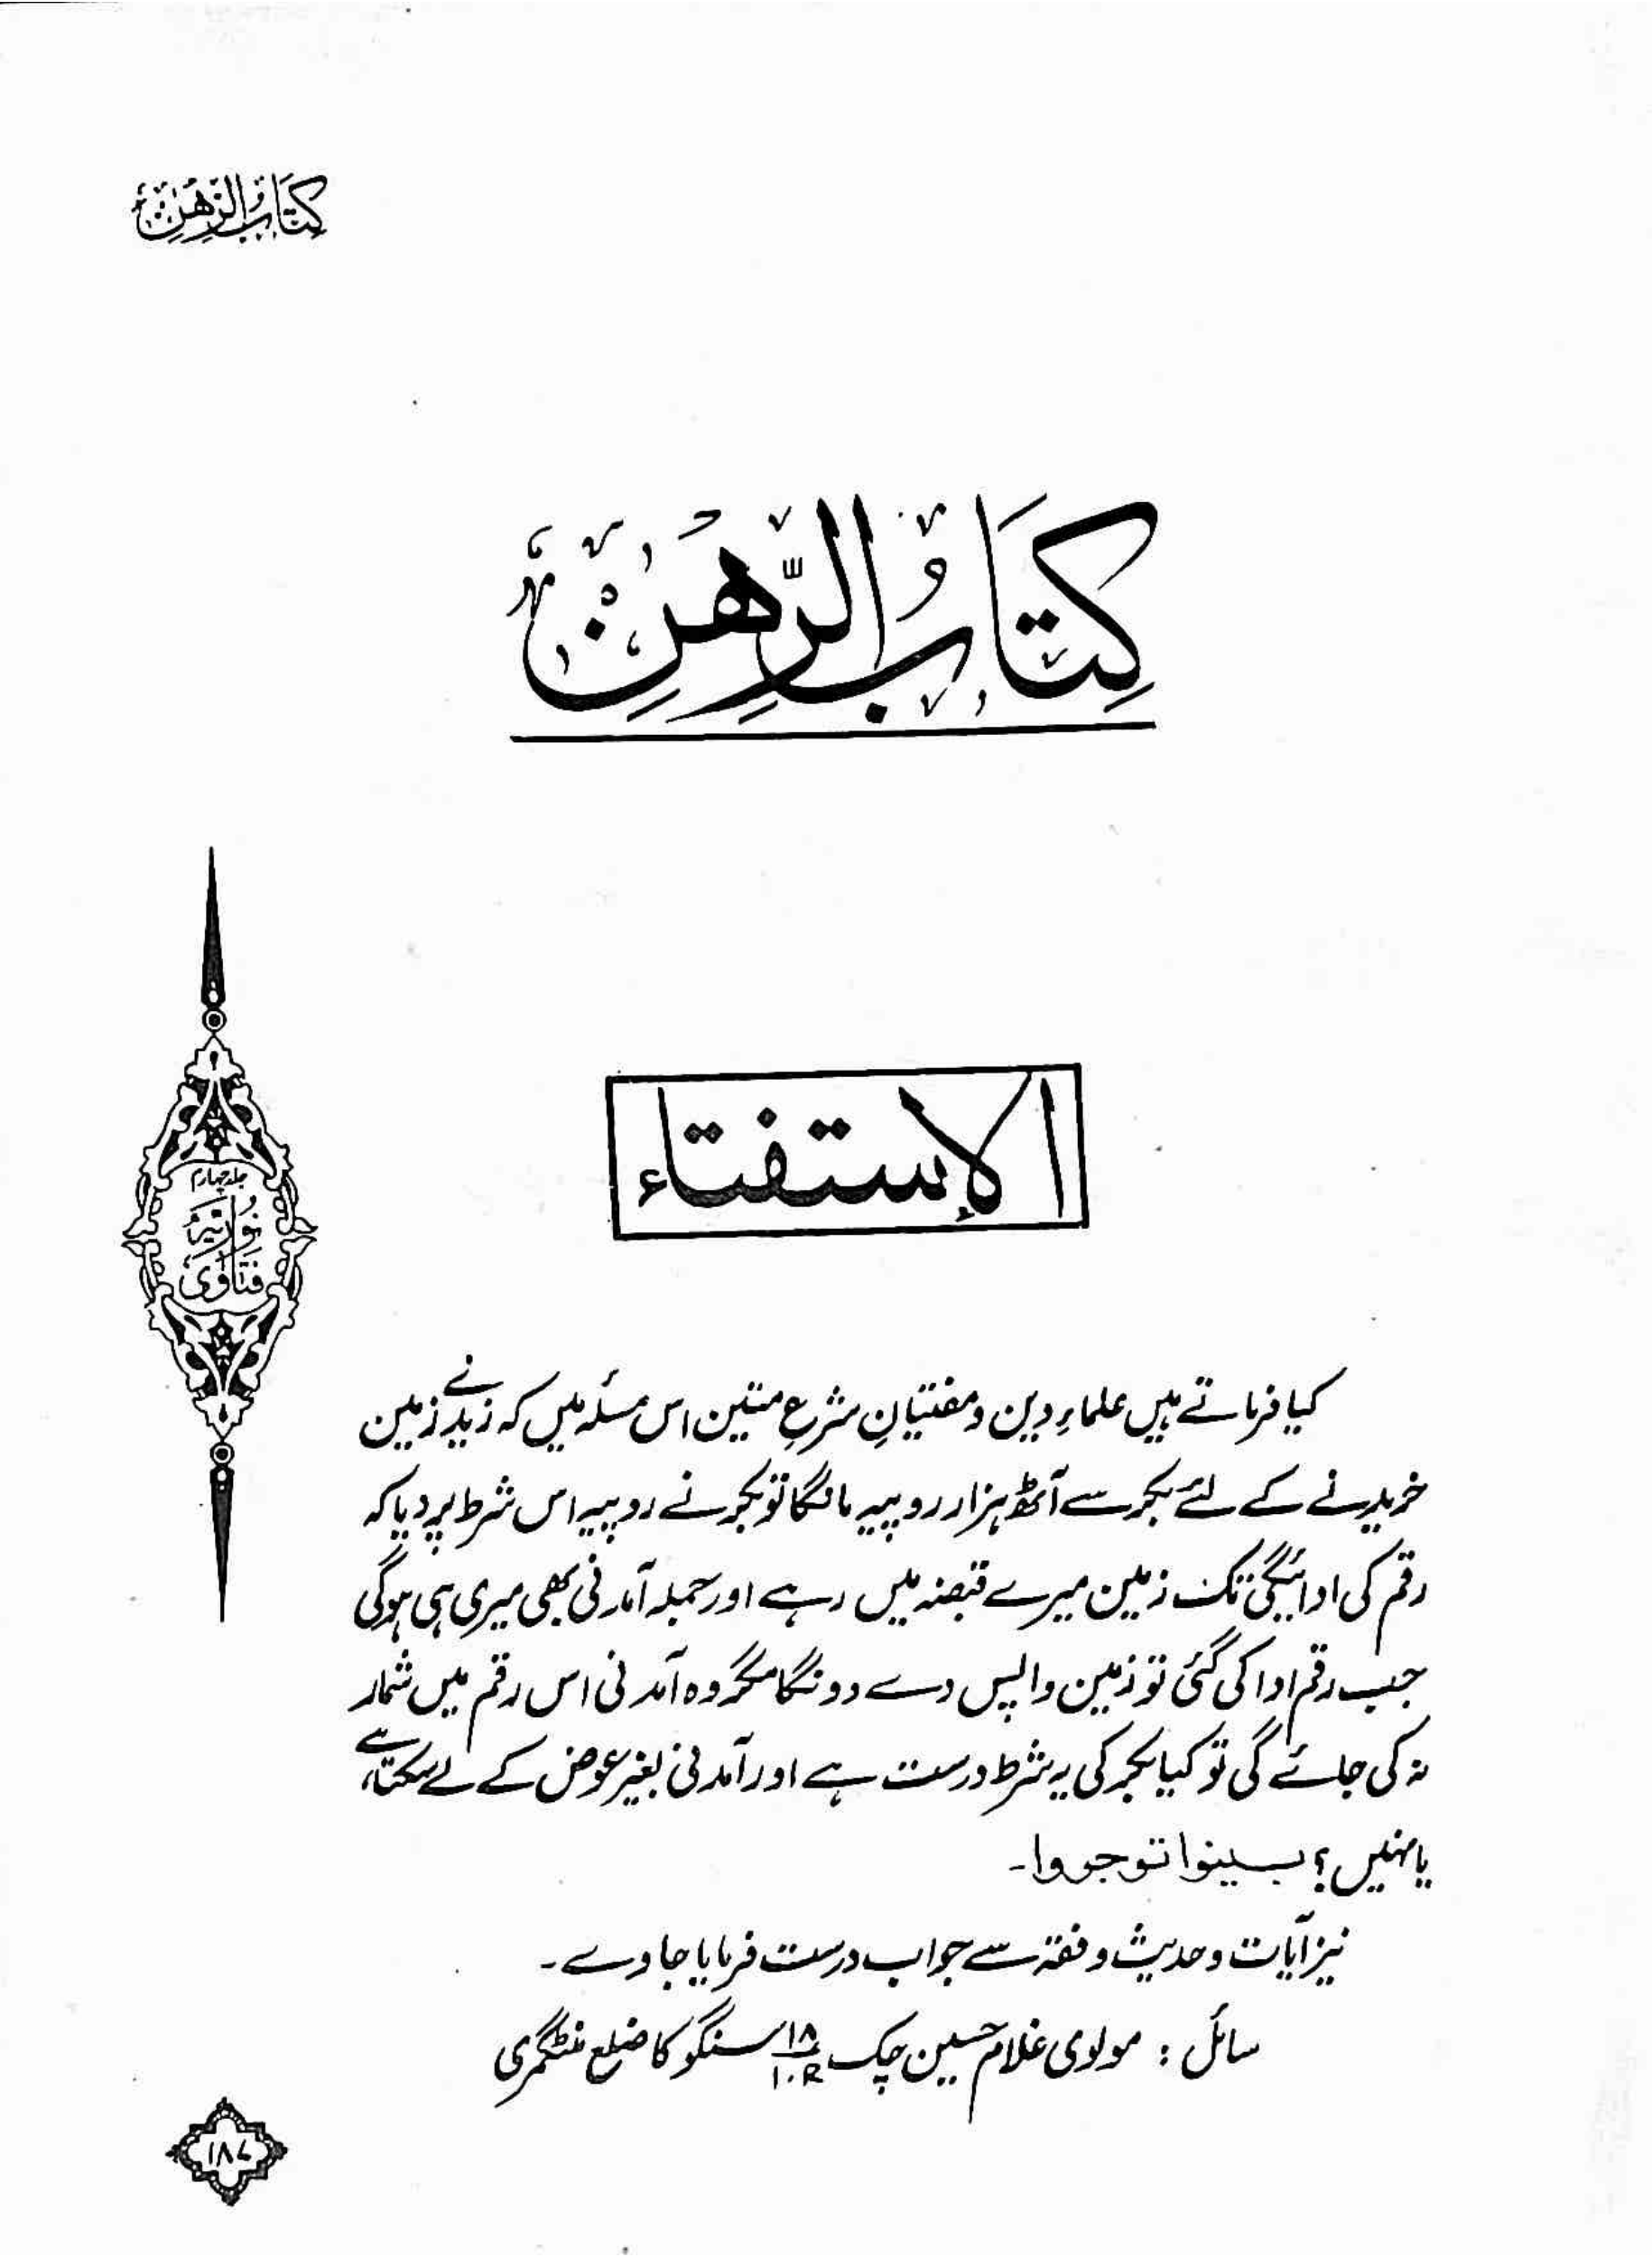 كِتَابُ الرَّهْنِ
كِتَابُ الرَّهْنِ
الاستفتاء
جلد چہارم
نُورِیَّہ
فتاوی
کیا فرماتے ہیں علماءِ دین و مفتیانِ شرعِ متین اس مسئلہ میں کہ زید نے زمین
خریدنے کے لئے بکر سے آٹھ ہزار روپیہ مانگا تو بکر نے روپیہ اس شرط پر دیا کہ
رقم کی ادائیگی تک زمین میرے قبضہ میں رہے اور جملہ آمدنی بھی میری ہی ہوگی
جب رقم ادا کی گئی تو زمین واپس دے دونگا مگر وہ آمدنی اس رقم میں شمار
نہ کی جائے گی تو کیا بکر کی یہ شرط درست ہے اور آمدنی بغیر عوض کے لے سکتا ہے
یا نہیں؟ بینوا توجروا۔
نیز آیات و حدیث و فقہ سے جواب درست فرمایا جاوے۔
سائل : مولوی غلام حسین چک ۱۸/۱۰R سنگو کا ضلع منٹگمری
۱۸۷